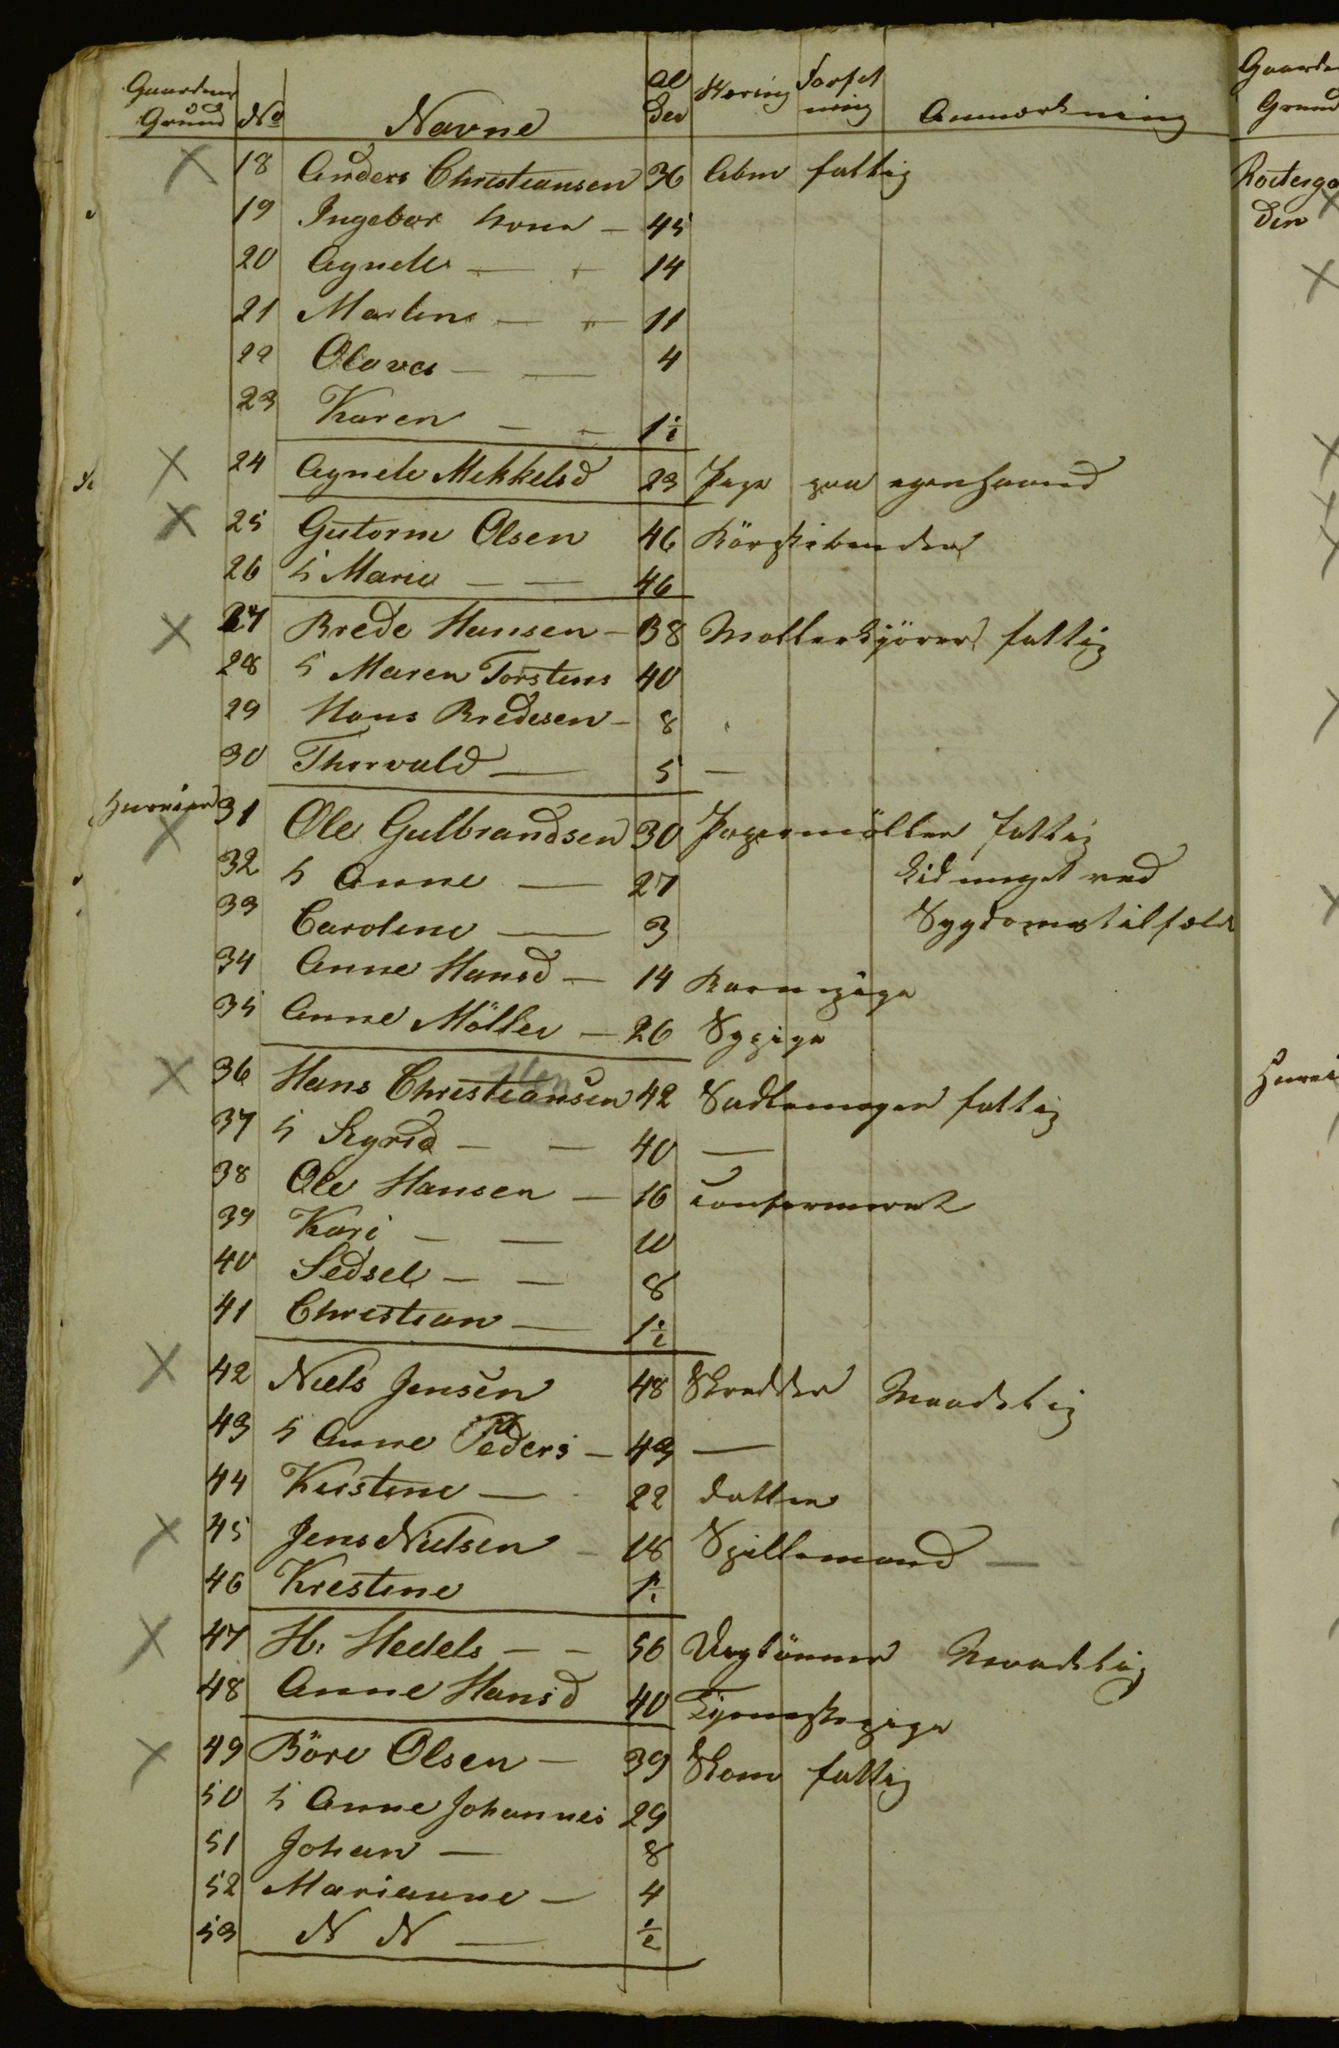 Gaardens Grund No Navne Alder Næring Forfatning Anmærkning
18 Anders Christiansen 36 Abm fattig
19 Ingebor kone - 45
20 Agnete - - 14
21 Martine - - 11
22 Olava - - 4
23 Karen - - 1½
24 Agnete Mikkelsd 23 Pige paa egenhaand
25 Gutorm Olsen 46 Börstebinder
26 h Marie - - 46
27 Brede Hansen - 38 Mollerkjörer fattig
28 h Maren Torstens 40
29 Hans Bredesen - 8
30 Thorvald - 5 -
31 Ole Gulbrandsen 30 Papermöller fattig
32 h Anne - 27 Lid meget ved
33 Caroline - 3 Sygdomstilfælde
34 Anne Hansd - 14 Barnepige
35 Anne Möller - 26 Sypige
36 Hans Christiansen 42 Sadlemager fattig
37 h Sigrid - - 40 -
38 Ole Hansen - 16 confirmeret
39 Kari - - 10
40 Sedsel - - 8
41 Christian - 1½
42 Niels Jensen 48 Skredder Maadelig
43 h Anne Peders - 49 -
44 Kirstine - 22 datter
45 Jens Nielsen - 18 Spillemand -
46 Krestine 1½
47 H. Hedels - - 56 Maadelig
48 Anne Hansd 40 Tjenestepige
49 Böre Olsen - 39 Skom fattig
50 h Anne Johannes 29
51 Johan - 8
52 Marianne - 4
53 N N - ½
Gaarden
Grund